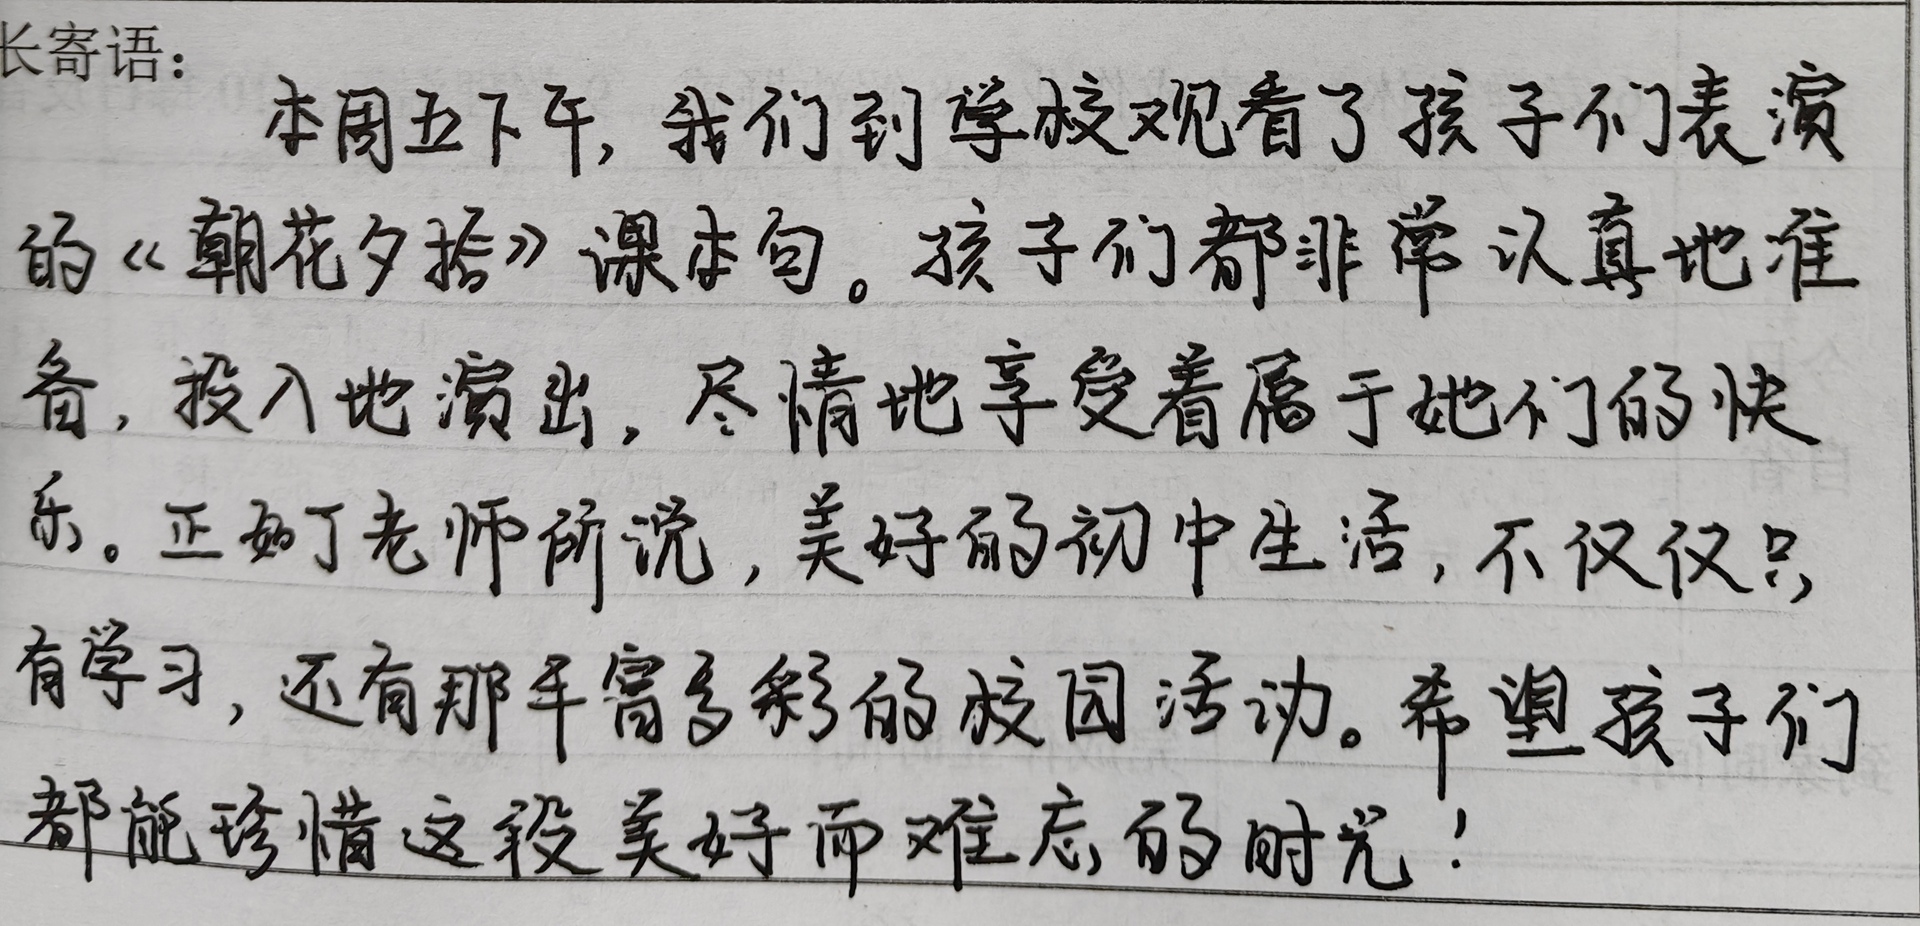 长寄语：
本周五下午，我们到学校观看了孩子们表演
的《朝花夕拾》课本句。孩子们都非常认真地准
备，投入地演出，尽情地享受着属于她们的快
乐。正如丁老师所说，美好的初中生活，不仅仅只
有学习，还有那丰富多彩的校园活动。希望孩子们
都能珍惜这段美好而难忘的时光！